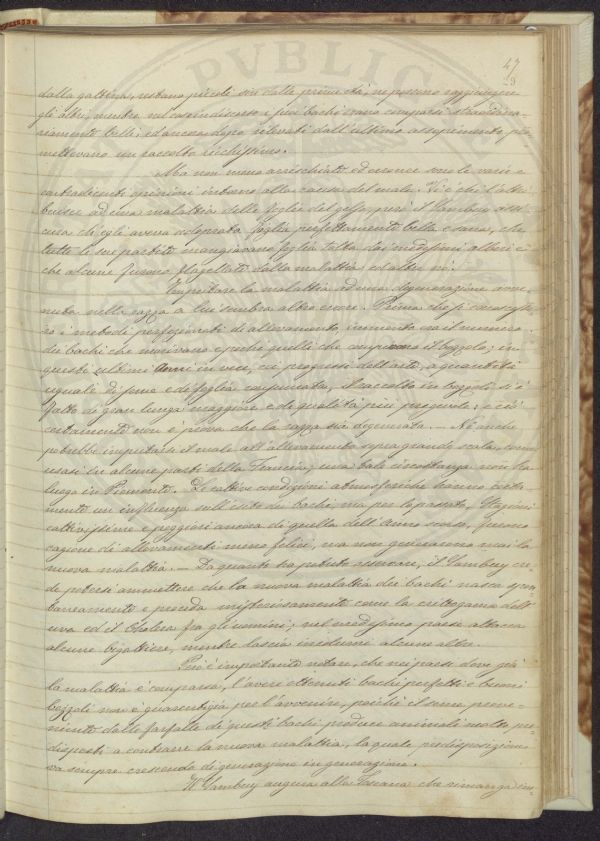 47
29
dalla gattina, restano piccoli sin dalle prime età, ne possono raggiungere
gli altri, mentre nel caso in discorso i suoi bachi erano comparsi straordina-
riamente belli, ed ancora dopo rilevati dall'ultimo assopimento pro-
mettevano un raccolto ricchissimo.
Ma non meno arrischiate ed erronee sono le varie e
contradicenti opinioni intorno alla causa del male. Vi è chi l'attri-
buisce ad una malattia delle foglie del gelso, però il Sambuy assi-
cura ch'egli aveva adoprato foglia perfettamente bella e sana, che
tutte le sue partite mangiavano foglia tolta dai medesimi alberi e
che alcune furono flagellate dalla malattia ed altre no.
Imputare la malattia ad una degenerazione avve-
nuta nella razza a lui sembra altro errore. Prima che si conoscesse-
ro i metodi perfezionati di allevamento, immenso era il numero
dei bachi che morivano e pochi quelli che compivano il bozzolo; in
questi ultimi anni in vece, coi progressi dell'arte, a quantità
uguale di seme e di foglia consumata, il raccolto in bozzoli si è
fatto di gran lunga maggiore e di qualità più pregevole; e ciò
certamente non è prova che la razza sia degenerata. — Nè anche
potrebbe imputarsi il male all'allevamento sopra grande scala, come
usasi in alcune parti della Francia; una tale circostanza non ha
luogo in Piemonte. Le cattive condizioni atmosferiche hanno certa-
mente un influenza sull'esito dei bachi, ma per lo passato, stagioni
cattivissime e peggiori ancora di quella dell'anno scorso, furono
cagione di allevamenti meno felici, ma non generarono mai la
nuova malattia. — Da quanto ha potuto osservare, il Sambuy cre-
de potersi ammettere che la nuova malattia dei bachi nasca spon-
taneamente e proceda misteriosamente come la crittogama dell'
uva ed il Cholera fra gli uomini; nel medesimo paese attacca
alcune bigattiere, mentre lascia incolumi alcune altre.
Però è importante notare, che nei paesi dove già
la malattia è comparsa, l'avere ottenuti bachi perfetti e buoni
bozzoli non è guarentigia per l'avvenire, poichè il seme prove-
niente dalle farfalle di questi bachi produce animali molto pre-
disposti a contrarre la nuova malattia, la quale predisposizione
va sempre crescendo di generazione in generazione.
Il Sambuy augura alla Toscana che rimanga im-